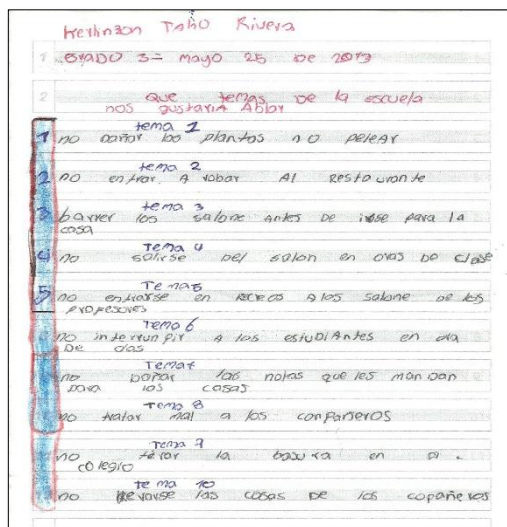 Kerlinzon Taño Rivera
1 GRADO 3= mayo 25 DE 2013
2 que temas De la escuela
nos gustaria Ablar
tema 1
1 no dañar las plantas no pelear
tema 2
2 no entrar A robar Al Restaurante
tema 3
3 barrer los salone antes de irse para la
casa
Tema 4
4 no salirse Del salon en oras De clase
Tema 5
5 no entrarse en recreo A los salone de los
profesores
Tema 6
no interrunpir A los estudiAntes en ora
De
Tema
no dañar las notas que les manDan
para las casas
Tema 8
no tratar mal a los conpañeros
Tema 9
no la basura en
colegio
tema 10
no las cosas De los copañeros